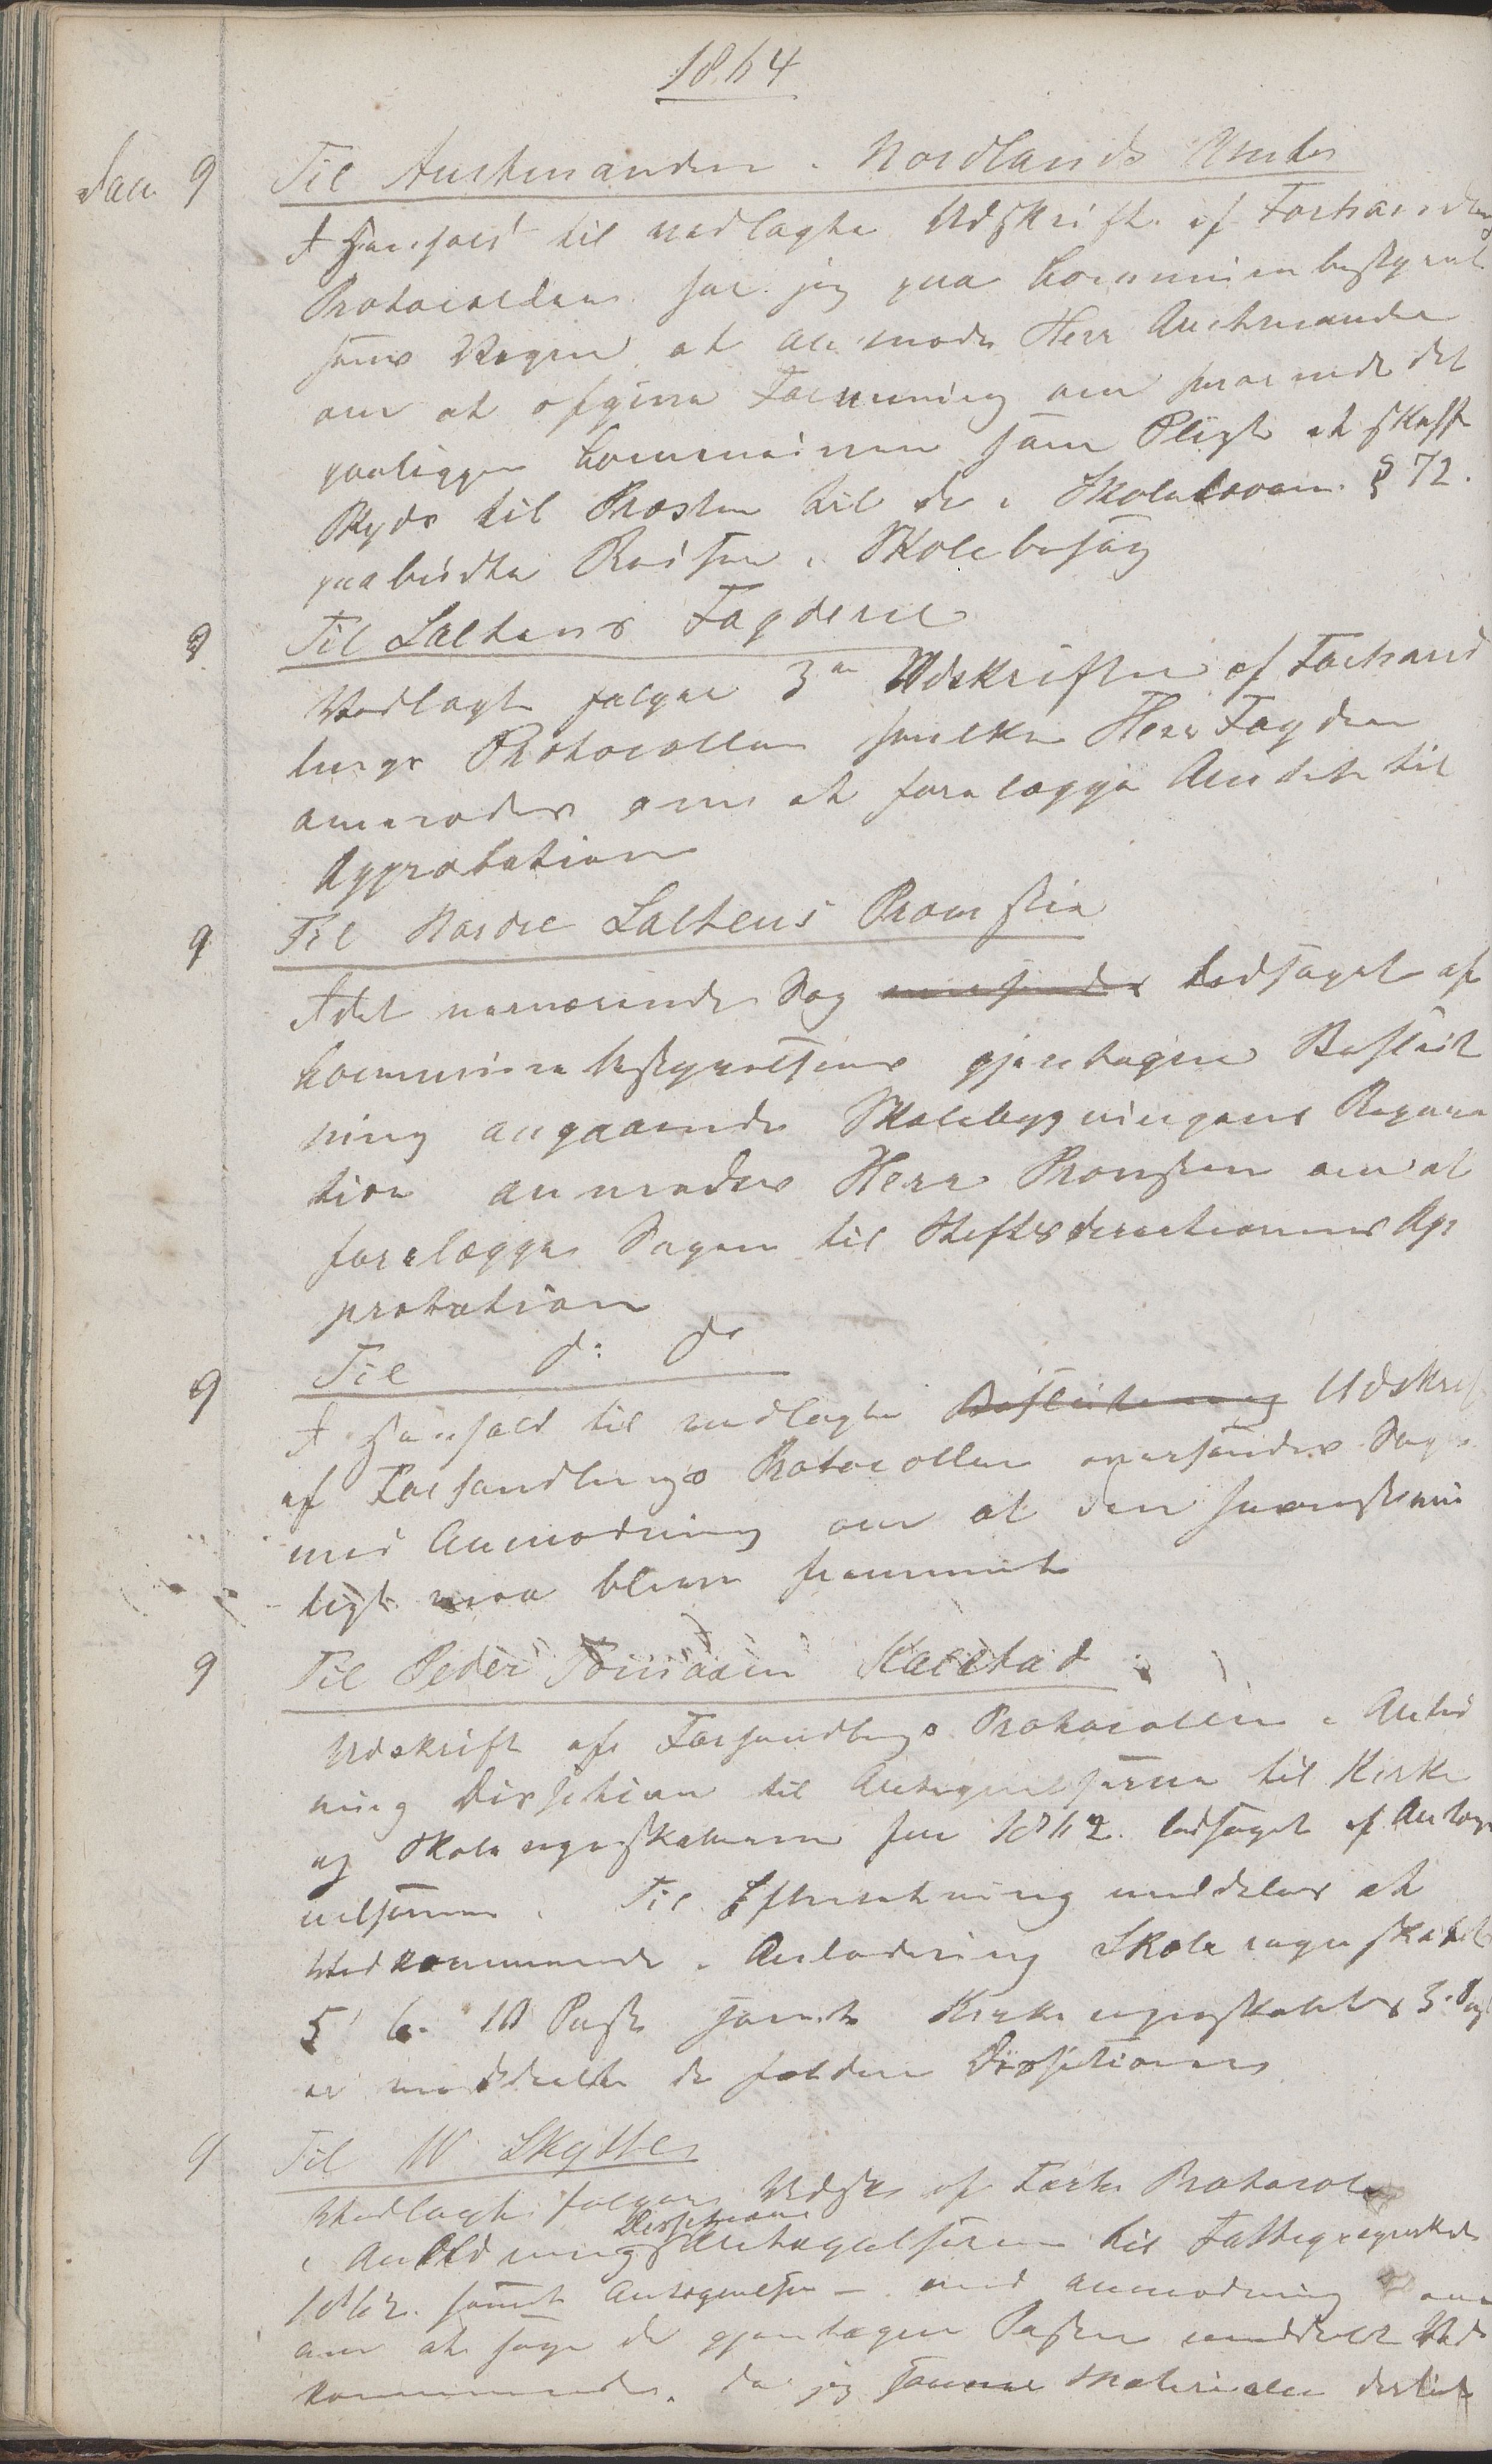 1864
Jan 9 Til Amtmanden i Nordlands Amter
I Henhold til vedlagte Udskrift af Forhandling
Protocollen har jeg paa Communebestyrel
sens Vegne at anmode Herr Amtmanden
om at afgive Formening om hvorvidt det
paaligger Communen som Pligt at skaffe
Skyds til Præsten til de i Skoleloven § 72.
paabudte Reiser i Skolebesøg
9 Til Saltens Fogderie
Vedlagt følger 3de Udskrifter af Forhand
lings Protocollen hvilke Herr Fogden
anmodes om at forelægge Amtet til
Approbation
9 Til Nordre Saltens Provstie
I det nærværende Sag ledsaget af
Communebestyrelsens gjentagne Beslut
ning angaaende Skolebygningens Repara
tion anmodes Herr Provsten om at
forelægge Sagen til Stiftsdirectionens Ap
probation
9 Til do do
I Henhold til vedlagte Beslutning Udskrift
af Forhandlings Protocollen oversendes Sagen
med Anmodning om at den
ligt maa blive fremmet
9 Til Peder Tomassen Kalstad
Udskrift af Forhandlings Protocollen i Anled
ning Decision til Antegnelserne til Kirke
og Skoleregnskaberne for 1862. ledsaget af Anteg
nelserne. Til Efterretning meddeles at
Vedkommende i Anledning Skoleregnskabets
5 6. 10 Post samt Kirkeregnskabets 3. Post
er meddelte de faldne Decisioner
9 Til W Skytte
Vedlagt følger Udskr af Forh Protocol
i Anledning Decisioner Antegnelserne til Fattigregnskab
1862. samt Antegnelser – med anmodning om
om at faae de gjentagne Poster meddelt Ved
kommende. da jeg savner Materialer dertil